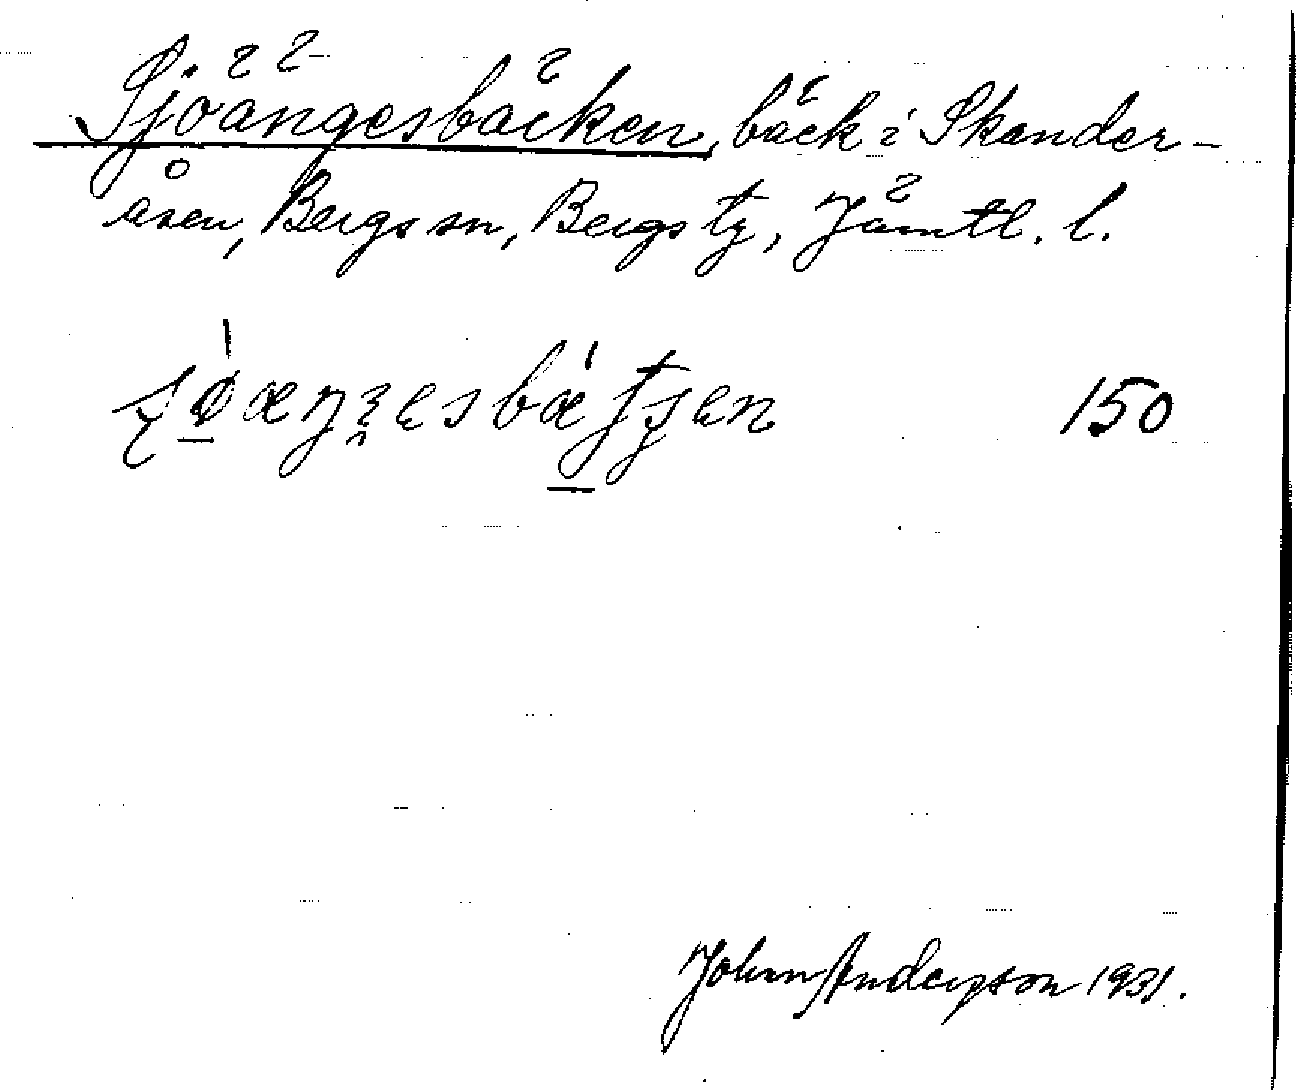 Sjöängesbäcken, bäck i Skander-
åsen, Bergs sn, Bergs tg, Jämtl. l.
150
John Anderson 1931.